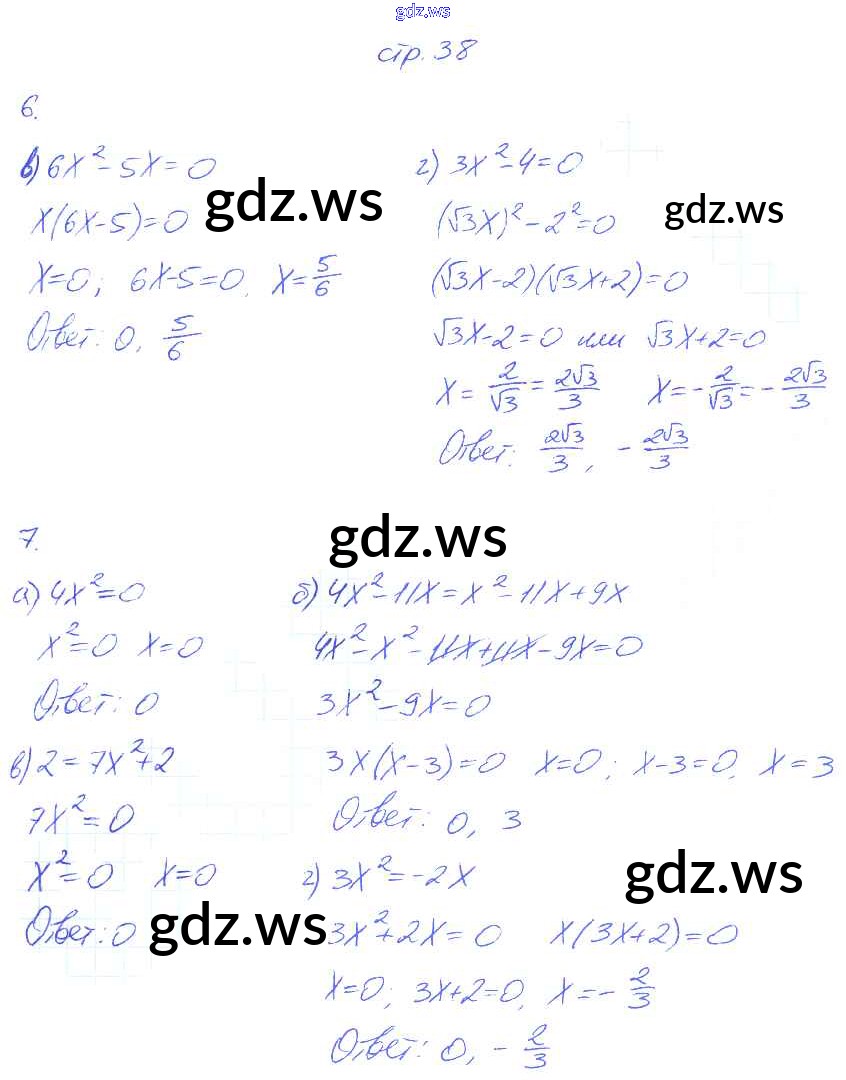 gdz.ws
стр. 38
6.
в) 6x² - 5x = 0
x(6x-5)=0
x=0; 6x-5=0, x=5/6
Ответ: 0, 5/6
gdz.ws
г) 3x² - 4 = 0
(√3x)² - 2² = 0
(√3x-2)(√3x+2)=0
√3x-2=0 или √3x+2=0
x = 2/√3 = 2√3/3 x = -2/√3 = -2√3/3
Ответ: 2√3/3, -2√3/3
gdz.ws
7.
gdz.ws
а) 4x²=0
x²=0 x=0
Ответ: 0
б) 4x²-11x=x²-11x+9x
4x²-x²-11x+11x-9x=0
3x²-9x=0
3x(x-3)=0 x=0; x-3=0, x=3
Ответ: 0, 3
в) 2=7x²+2
7x²=0
x²=0 x=0
Ответ: 0
gdz.ws
г) 3x²=-2x
gdz.ws
3x²+2x=0 x(3x+2)=0
x=0; 3x+2=0, x=-2/3
Ответ: 0, -2/3